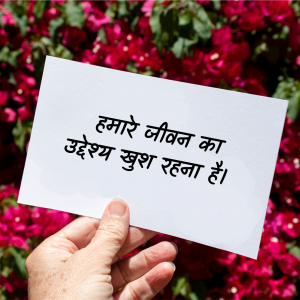 हमारे जीवन का
उद्देश्य खुश रहना है।